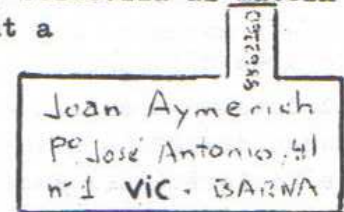 t a
Joan Aymerich
Pº José Antonio, 41
nº 1 VIC. BARNA